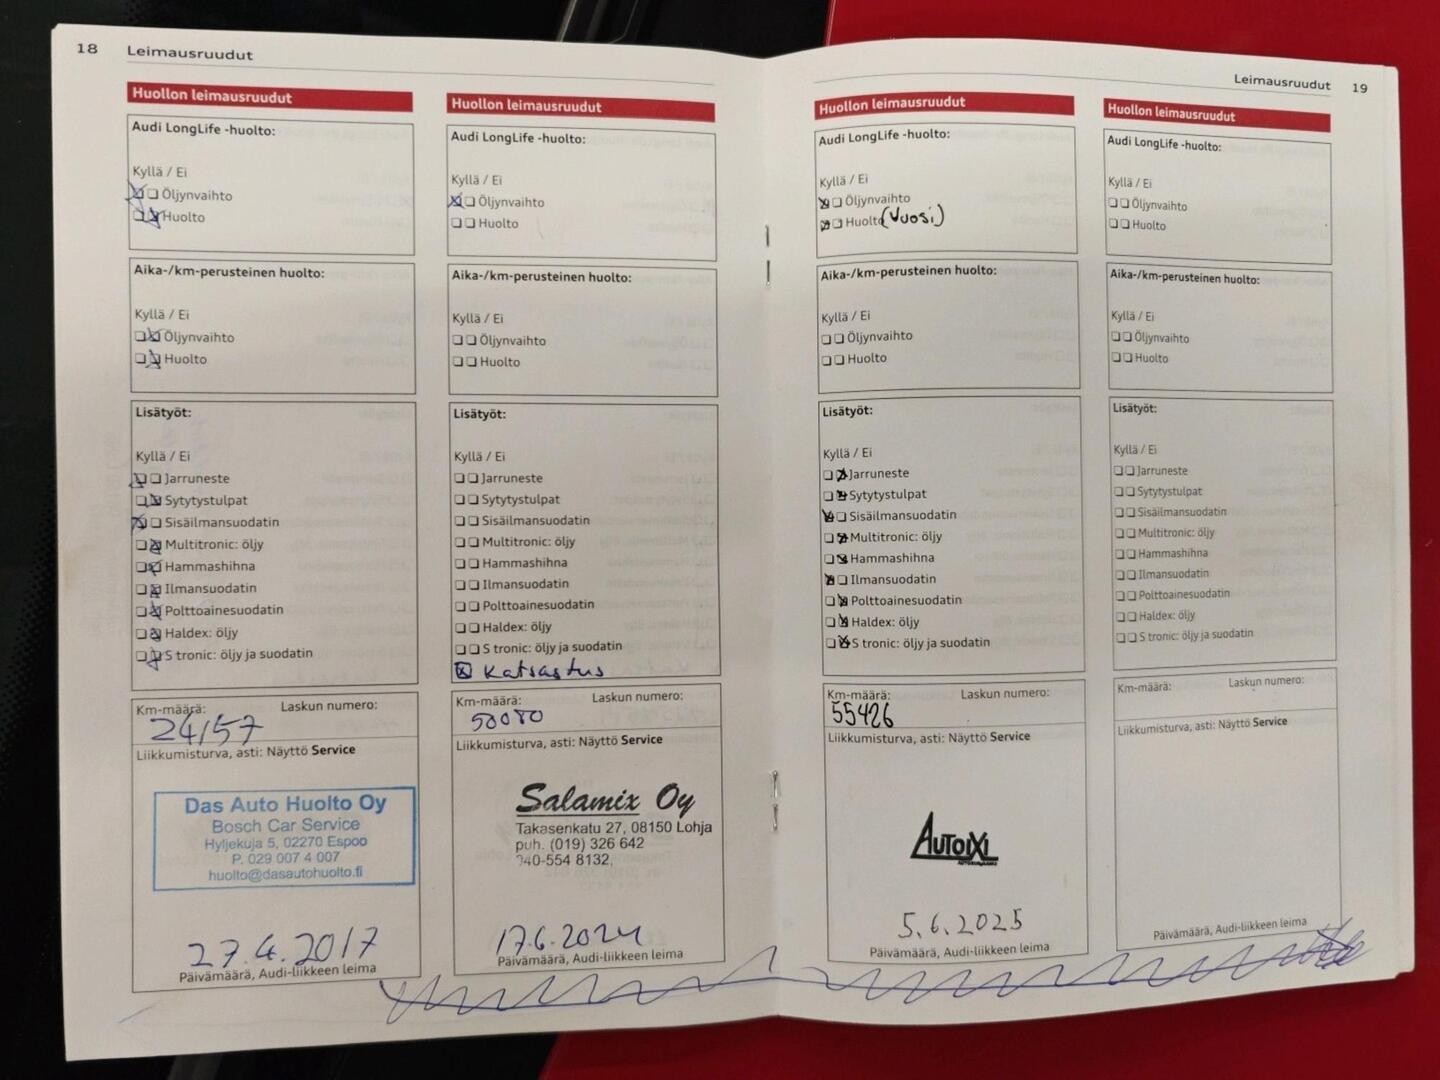 18 Leimausruudut
Huollon leimausruudut
Audi LongLife -huolto:
Kyllä / Ei
Öljynvaihto
Huolto
Aika-/km-perusteinen huolto:
Kyllä / Ei
Öljynvaihto
Huolto
Lisätyöt:
Kyllä / Ei
Jarruneste
Sytytystulpat
Sisäilmansuodatin
Multitronic: öljy
Hammashihna
Ilmansuodatin
Polttoainesuodatin
Haldex: öljy
S tronic: öljy ja suodatin
Km-määrä: Laskun numero:
24157
Liikkumisturva, asti: Näyttö Service
Das Auto Huolto Oy
Bosch Car Service
Hyljekuja 5, 02270 Espoo
P. 029 007 4 007
huolto@dasautohuolto.fi
27.4.2017
Päivämäärä, Audi-liikkeen leima
Huollon leimausruudut
Audi LongLife -huolto:
Kyllä / Ei
Öljynvaihto
Huolto
Aika-/km-perusteinen huolto:
Kyllä / Ei
Öljynvaihto
Huolto
Lisätyöt:
Kyllä / Ei
Jarruneste
Sytytystulpat
Sisäilmansuodatin
Multitronic: öljy
Hammashihna
Ilmansuodatin
Polttoainesuodatin
Haldex: öljy
S tronic: öljy ja suodatin
Katsastus
Km-määrä: Laskun numero:
Liikkumisturva, asti: Näyttö Service
Salamix Oy
Takasenkatu 27, 08150 Lohja
puh. (019) 326 642
040-554 8132,
17.6.2024
Päivämäärä, Audi-liikkeen leima
Leimausruudut 19
Huollon leimausruudut
Audi LongLife -huolto:
Kyllä / Ei
Öljynvaihto
Huolto (Vuosi)
Aika-/km-perusteinen huolto:
Kyllä / Ei
Öljynvaihto
Huolto
Lisätyöt:
Kyllä / Ei
Jarruneste
Sytytystulpat
Sisäilmansuodatin
Multitronic: öljy
Hammashihna
Ilmansuodatin
Polttoainesuodatin
Haldex: öljy
S tronic: öljy ja suodatin
Km-määrä: Laskun numero:
55426
Liikkumisturva, asti: Näyttö Service
AUTOIXI
5.6.2025
Päivämäärä, Audi-liikkeen leima
Huollon leimausruudut
Audi LongLife -huolto:
Kyllä / Ei
Öljynvaihto
Huolto
Aika-/km-perusteinen huolto:
Kyllä / Ei
Öljynvaihto
Huolto
Lisätyöt:
Kyllä / Ei
Jarruneste
Sytytystulpat
Sisäilmansuodatin
Multitronic: öljy
Hammashihna
Ilmansuodatin
Polttoainesuodatin
Haldex: öljy
S tronic: öljy ja suodatin
Km-määrä: Laskun numero:
Liikkumisturva, asti: Näyttö Service
Päivämäärä, Audi-liikkeen leima